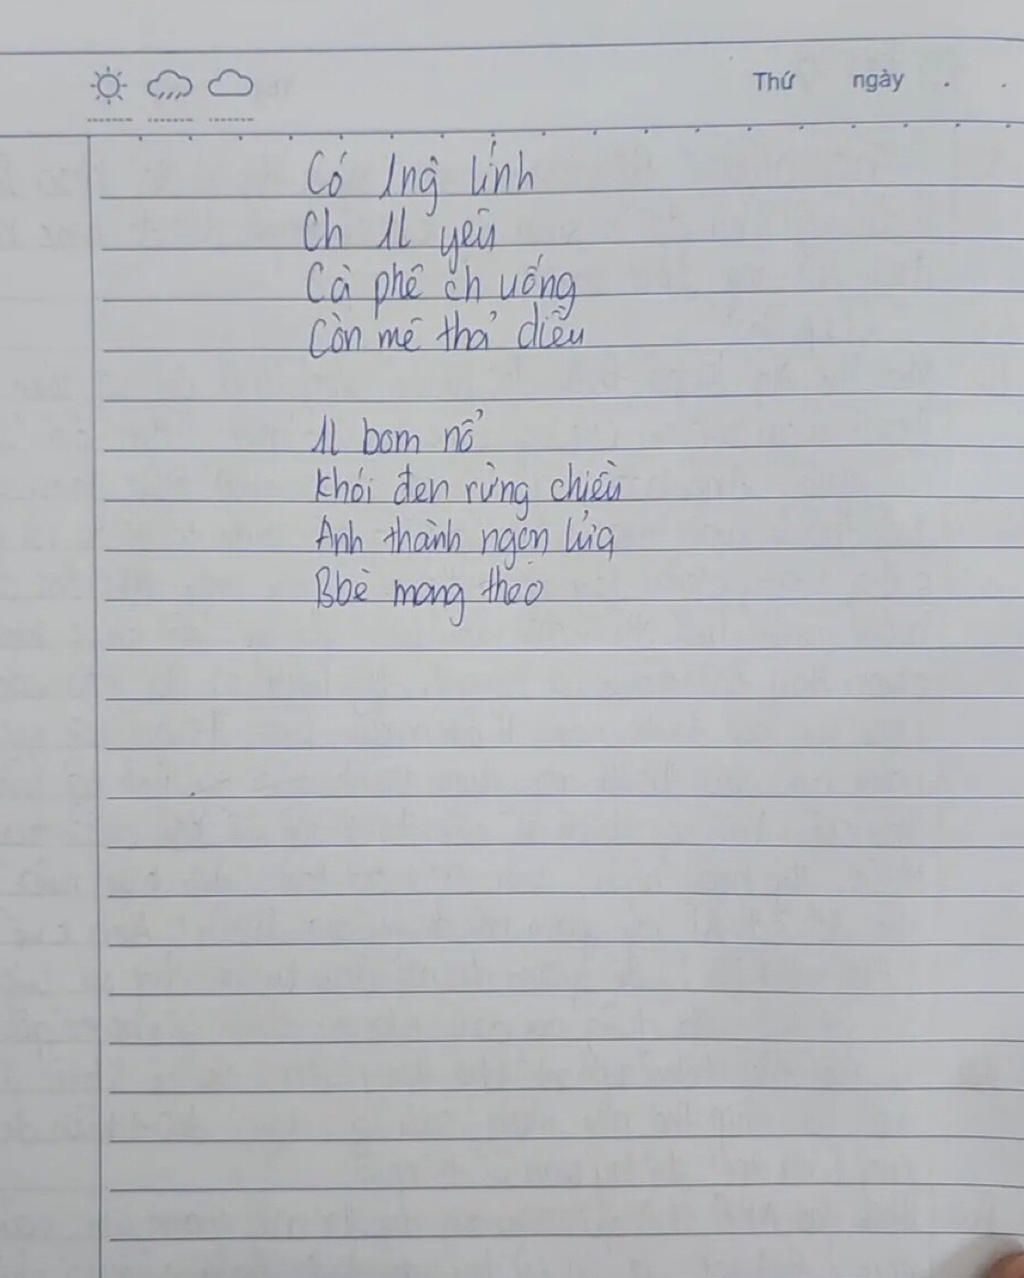 Thứ ngày . .
Có 1 ng lính
Ch 1L yêu
Cà phê ch uống
Còn mê thả diều
1L bom nổ
Khói đen rừng chiều
Anh thành ngọn lửa
Bbè mang theo